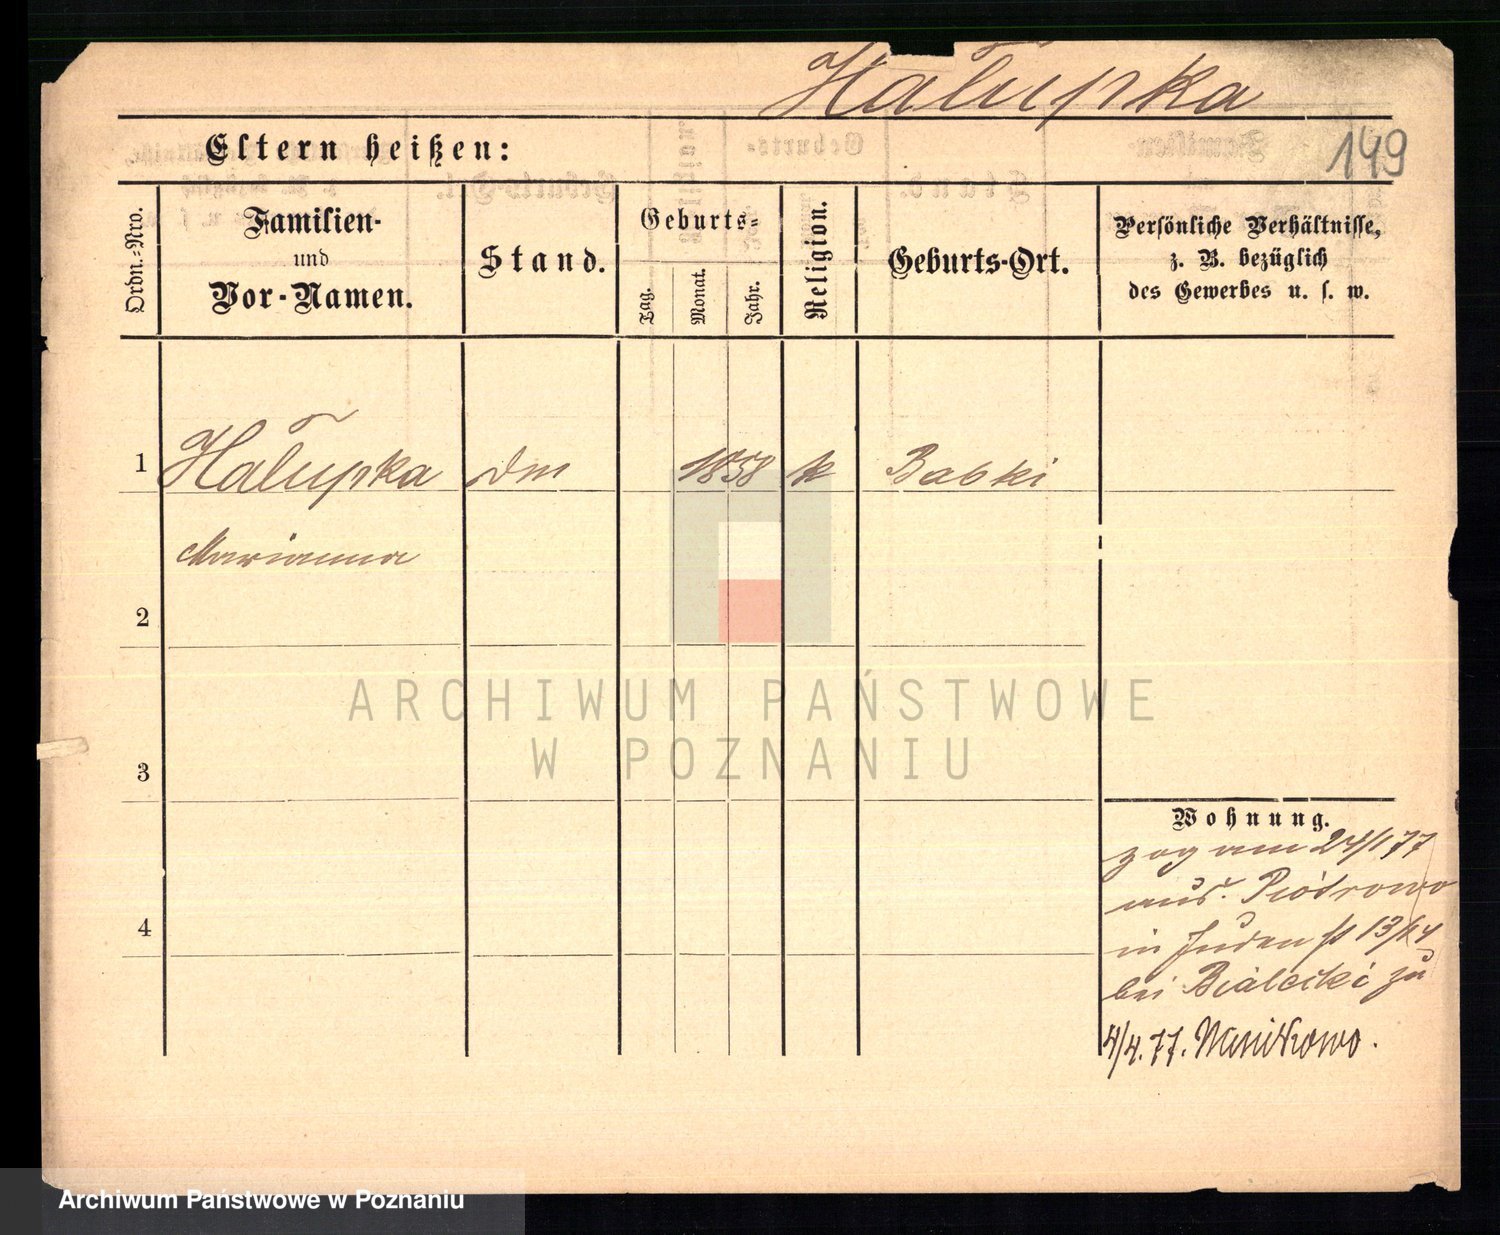 Hałupka
149
Eltern heißen:
Ordn.-Nro.
Familien-
und
Vor-Namen.
Stand.
Geburts-
Tag.
Monat.
Jahr.
Religion.
Geburts-Ort.
Persönliche Verhältnisse,
z. B. bezüglich
des Gewerbes u. s. w.
1
Hałupka
1858
k
Babki
Marianna
2
3
4
Wohnung.
zog am 24/1 77
aus Piotrowo
in Juden st 13/14
bei Bialecki zu
4/4. 77.
ARCHIWUM PAŃSTWOWE
W POZNANIU
Archiwum Państwowe w Poznaniu